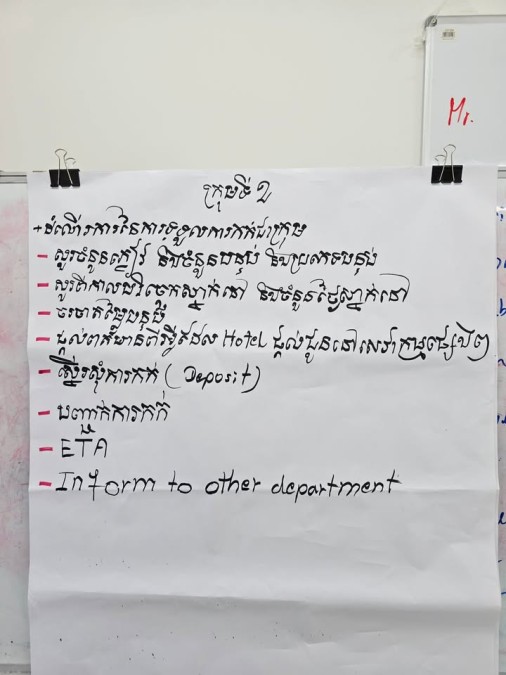 Mr.
ក្រុមទី 2
+ដំណើរការនៃការទទួលការកក់ជាក្រុម
- សួរចំនួនភ្ញៀវ និងចំនួនបន្ទប់ និងប្រភេទបន្ទប់
- សួរពីកាលបរិច្ឆេទស្នាក់នៅ និងចំនួនថ្ងៃស្នាក់នៅ
- ចរចាតម្លៃបន្ទប់
- ផ្តល់ពត៌មានពីអ្វីដែល Hotel ផ្តល់ជូននៅសេវាកម្មផ្សេងៗ
- ស្នើរសុំការកក់ (Deposit)
- បញ្ជាក់ការកក់
- ETA
- Inform to other department